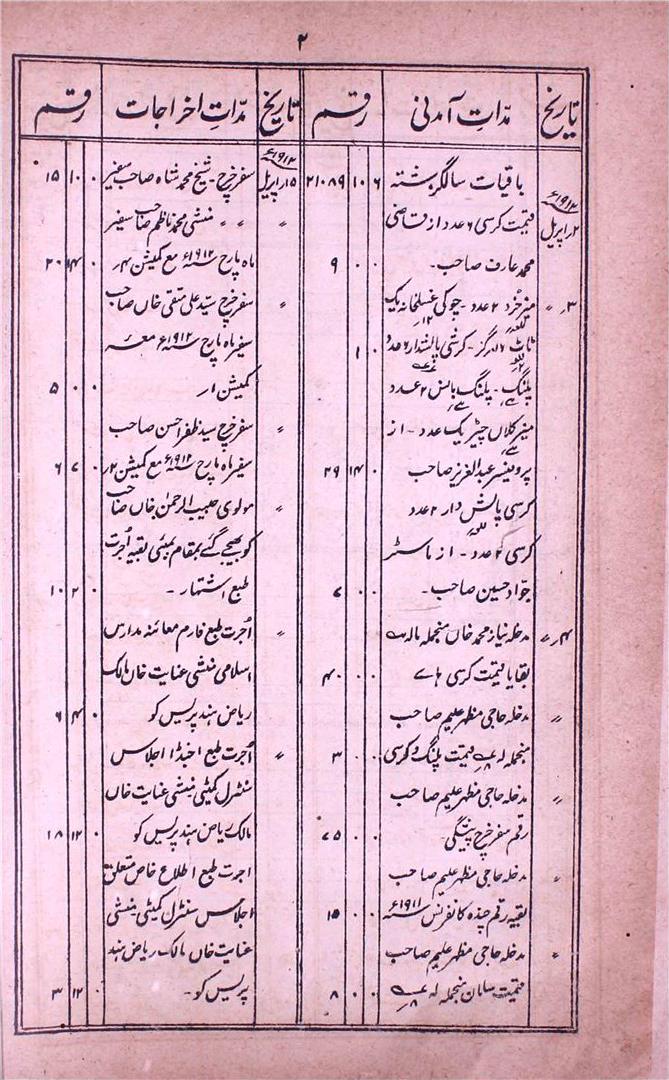 ۲
تاریخ مدّاتِ آمدنی رقم تاریخ مدّاتِ اخراجات رقم
۱۹۱۲ء
۲؍اپریل
باقیات سال گزشتہ ۲۱۰۸۹ ۱۰ ۶
قیمت کرسی ۶ عدد از قاضی
محمد عارف صاحب۔ ۹ ۰ ۰
۳؍ 〃 میز خُرد ۲ عدد۔ چوکی غسلخانہ یک
ٹاٹ گز۔ کرسی بالشدار ۶ عدد
پلنگ۔ پلنگ بالش ۲ عدد
میز کلاں چیڑ یک عدد۔ از
پروفیسر عبدالعزیز صاحب ۲۹ ۱۴ ۰
کرسی بالش دار ۲ عدد
کرسی ۲ عدد۔ از ماسٹر
جوّاد حسین صاحب۔ ۷ ۰ ۰
۴؍ 〃 مدخلہ نیاز محمد خاں منجملہ
بقایا قیمت کرسی ہائے ۴۰ ۰ ۰
〃 مدخلہ حاجی مظہر علیم صاحب
منجملہ قیمت پلنگ و کرسی ۳ ۰ ۰
〃 مدخلہ حاجی مظہر علیم صاحب
رقم سفر خرچ پیشگی۔ ۷۵ ۰ ۰
〃 مدخلہ حاجی مظہر علیم صاحب
بقیہ رقم چندہ کانفرنس ۱۹۱۱ء ۱۵ ۰ ۰
〃 مدخلہ حاجی مظہر علیم صاحب
قیمت سامان منجملہ ۸ ۰ ۰
۱۹۱۲ء
۱۵؍اپریل سفر خرچ۔ شیخ محمد شاہ صاحب سفیر ۱۵ ۱۰ ۰
〃 〃 〃 منشی محمد ناظم صاحب سفیر
ماہ مارچ ۱۹۱۲ء مع کمیشن ۴؍ ۲۰ ۱۴ ۰
〃 سفر خرچ سیّد علی متقی خاں صاحب
سفیر ماہ مارچ ۱۹۱۲ء معہ
کمیشن ۱؍ ۵ ۰ ۰
〃 سفر خرچ سید ظفر احسن صاحب
سفیر ماہ مارچ ۱۹۱۲ء مع کمیشن ۲؍ ۶ ۷ ۰
〃 مولوی حبیب الرحمٰن خاں صاحب
کو بھیجے گئے بمقام بمبئی بقیہ اُجرت
طبع اشتہار۔ ۱۰ ۲ ۰
〃 اُجرت طبع فارم معائنہ مدارس
اسلامی منشی عنایت خاں مالک
ریاض ہند پریس کو ۶ ۴ ۰
〃 اُجرت طبع اجنڈا اجلاس
سنٹرل کمیٹی منشی عنایت خاں
مالک ریاض ہند پریس کو ۱۸ ۱۲ ۰
اجرت طبع اطلاع خاص متعلق
اجلاس سنٹرل کمیٹی منشی
عنایت خاں مالک ریاض ہند
پریس کو۔ ۳ ۱۲ ۰